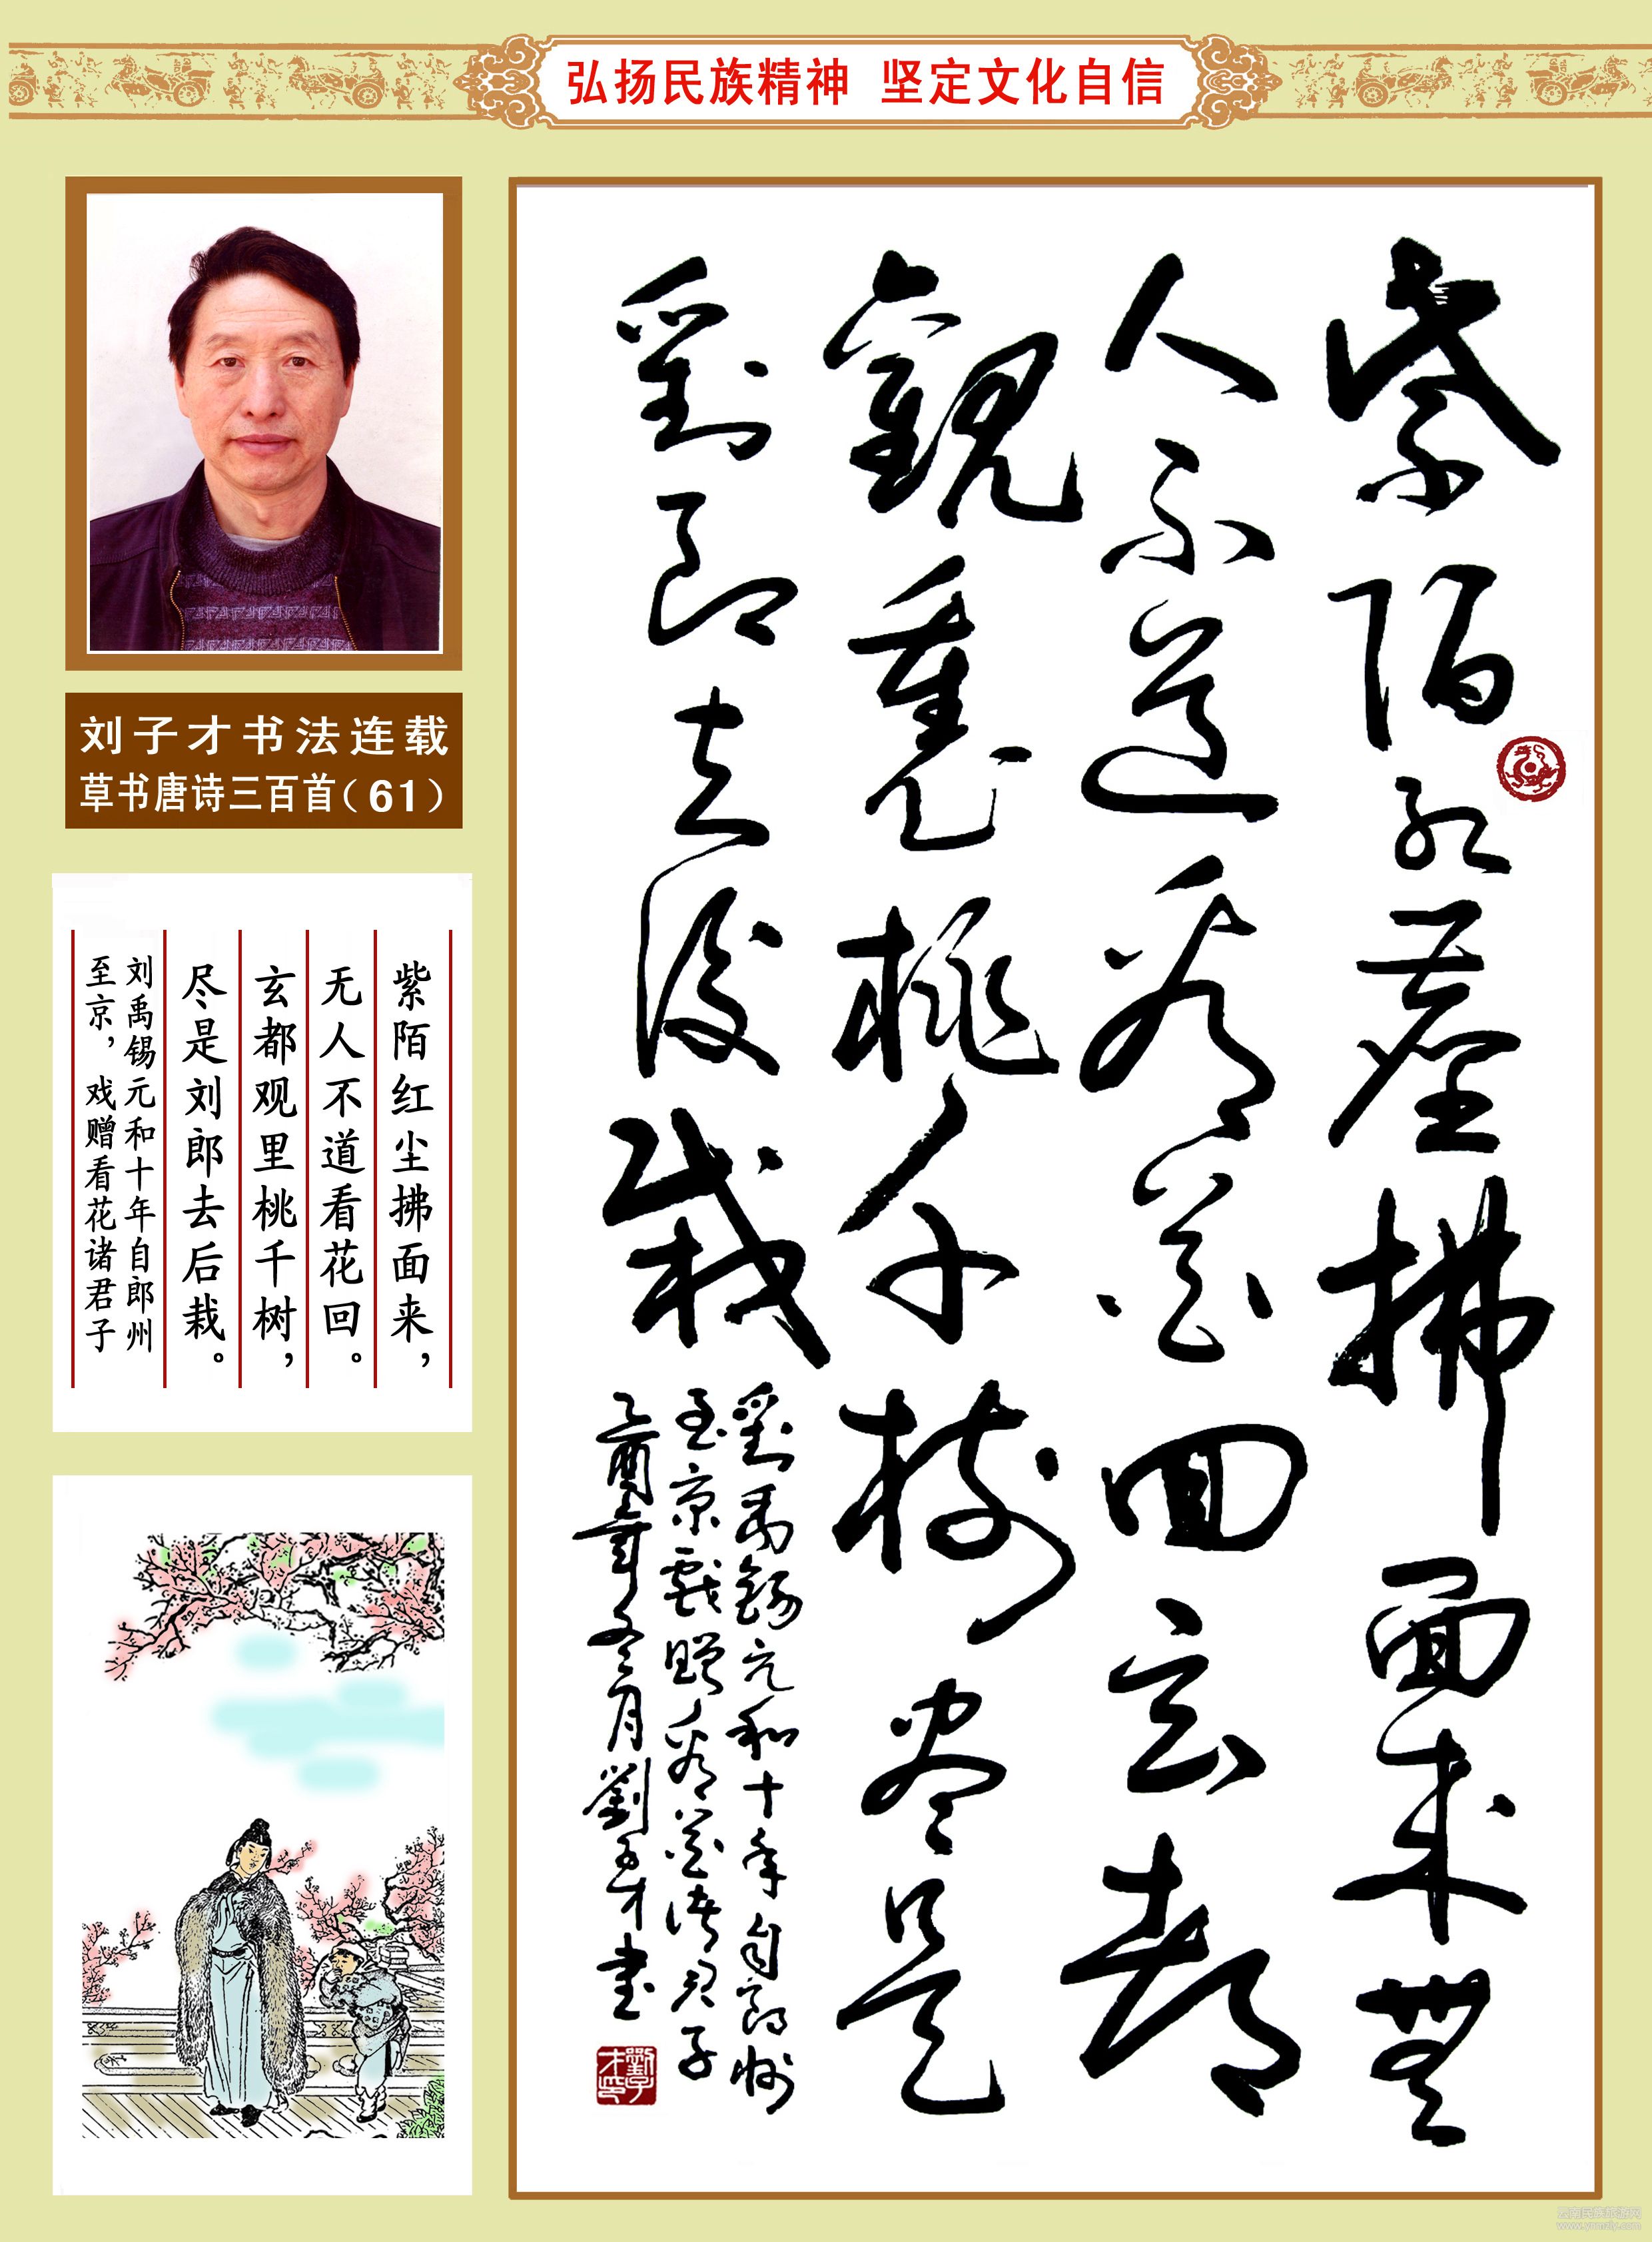 弘扬民族精神 坚定文化自信
紫陌红尘拂面来无
人不道看花回玄都
觀里桃千树尽是
劉郎去後栽
劉禹錫元和十年自郎州
至京戲贈看花諸君子
乙酉年冬月劉子才書
劉子才印
刘子才书法连载
草书唐诗三百首（61）
紫陌红尘拂面来，
无人不道看花回。
玄都观里桃千树，
尽是刘郎去后栽。
刘禹锡元和十年自郎州
至京，戏赠看花诸君子